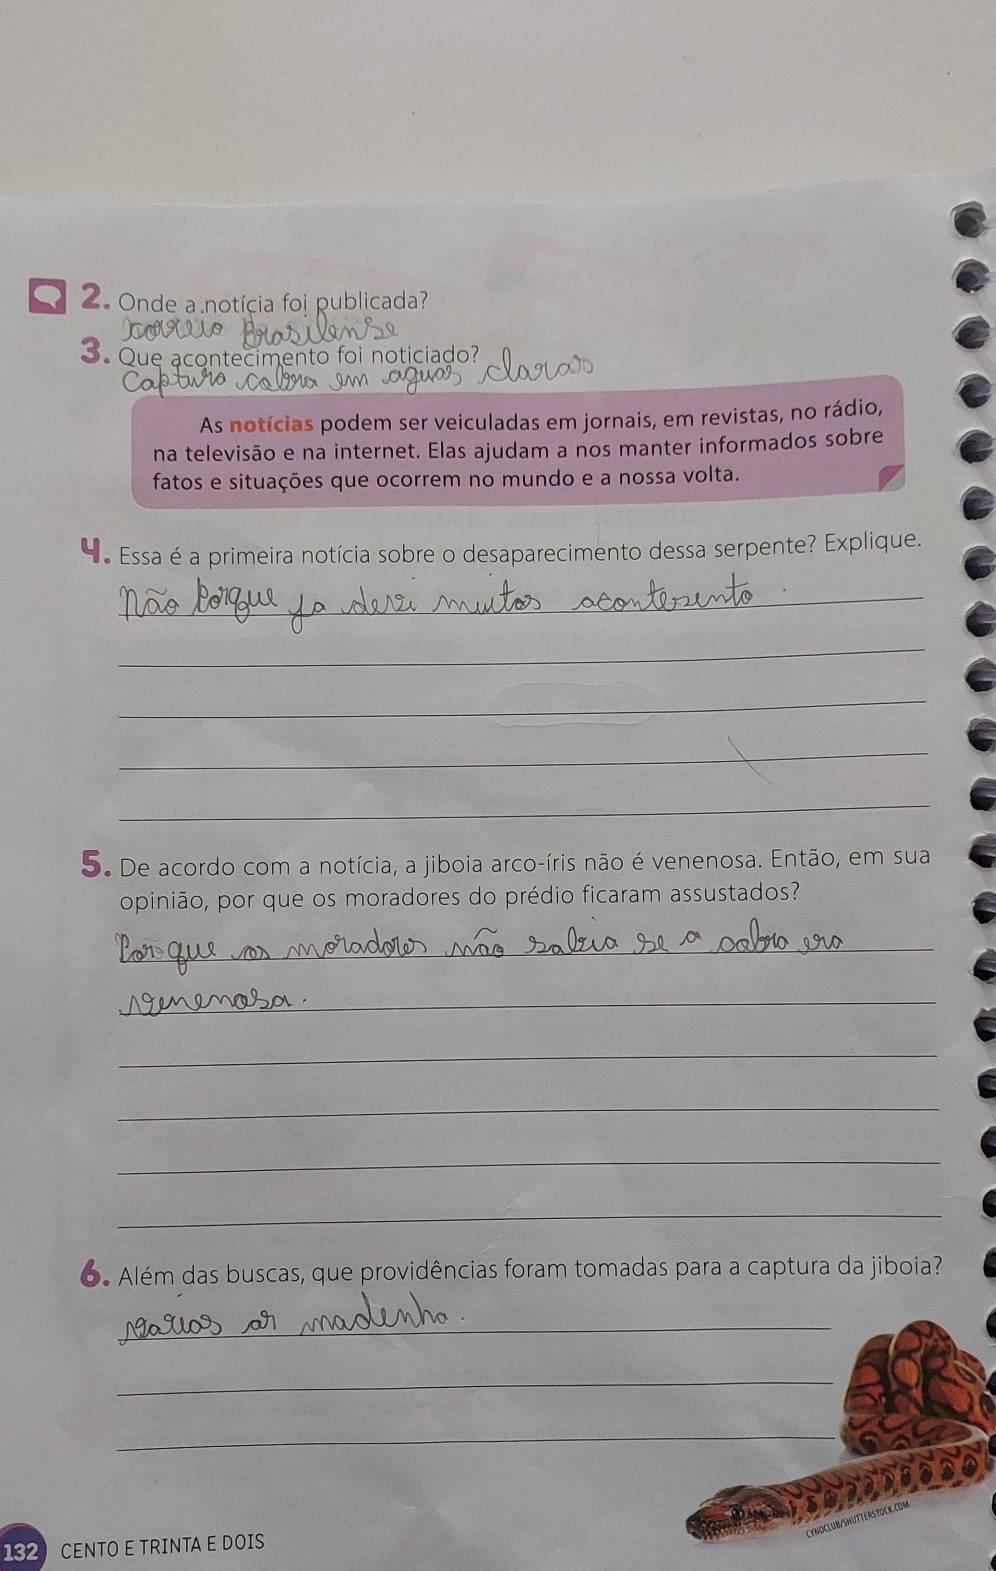 2. Onde a notícia foi publicada?
Correio Brasilense
3. Que acontecimento foi noticiado?
Capturo cabra em aguas claras
As notícias podem ser veiculadas em jornais, em revistas, no rádio,
na televisão e na internet. Elas ajudam a nos manter informados sobre
fatos e situações que ocorrem no mundo e a nossa volta.
4. Essa é a primeira notícia sobre o desaparecimento dessa serpente? Explique.
não Porque ja muitos
5. De acordo com a notícia, a jiboia arco-íris não é venenosa. Então, em sua
opinião, por que os moradores do prédio ficaram assustados?
Porque os moradores não sabia se a cobra era
venenosa.
6. Além das buscas, que providências foram tomadas para a captura da jiboia?
CYNOCLUB/SHUTTERSTOCK.COM
132 CENTO E TRINTA E DOIS